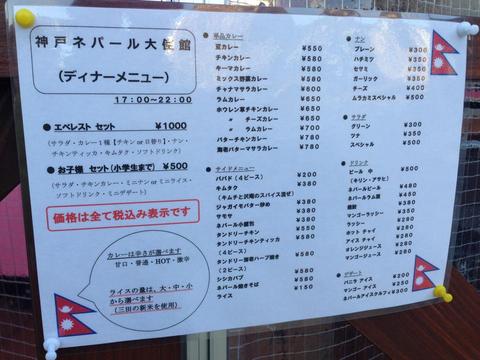 神戸ネパール大使館
(ディナーメニュー)
17:00~22:00
● エベレスト セット ¥1000
(サラダ・カレー1種【チキン or 日替り】・ナン・
チキンティッカ・キムタク・ソフトドリンク)
● お子様 セット(小学生まで) ¥500
(サラダ・チキンカレー・ミニナン or ミニライス・
ソフトドリンク・ミニデザート)
価格は全て税込み表示です
カレーは辛さが選べます
甘口・普通・HOT・激辛
ライスの量は、大・中・小
から選べます
(三田の新米を使用)
● 単品カレー
豆カレー ¥550
チキンカレー ¥580
キーマカレー ¥580
ミックス野菜カレー ¥580
チャナマサラカレー ¥580
ラムカレー ¥650
ホウレン草チキンカレー ¥650
〃 チーズカレー ¥650
〃 ラムカレー ¥700
バターチキンカレー ¥780
海老バターマサラカレー ¥780
● サイドメニュー
パパド(4ピース) ¥200
キムタク
(キムチと沢庵のスパイス混ぜ)
ジャガイモバター炒め
サモサ
ネパール小籠包
タンドリーチキン
タンドリーチキンティッカ
(4ピース)
(2ピース)
シシカバブ
ネパール焼きそば
ライス ¥150
● ナン
プレーン ¥300
ハチミツ ¥350
セサミ ¥350
ガーリック ¥350
チーズ ¥400
ムラカミスペシャル ¥500
● サラダ
グリーン ¥300
ツナ ¥350
スペシャル ¥500
● ドリンク
ビール 中 ¥500
(キリン・アサヒ)
ネパールビール ¥480
ネパールラム酒 ¥450
焼酎 ¥380
マンゴーラッシー ¥350
ラッシー ¥280
ホット チャイ ¥280
アイス チャイ ¥280
オレンジジュース ¥280
マンゴージュース ¥280
● デザート
バニラ アイス ¥200
マンゴー アイス ¥250
ネパールアイスクルフィ ¥300